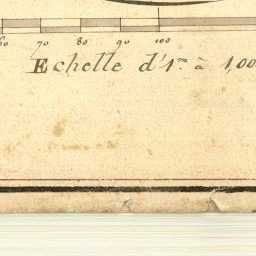 60 70 80 90 100
Echelle d'1.m à 1,00